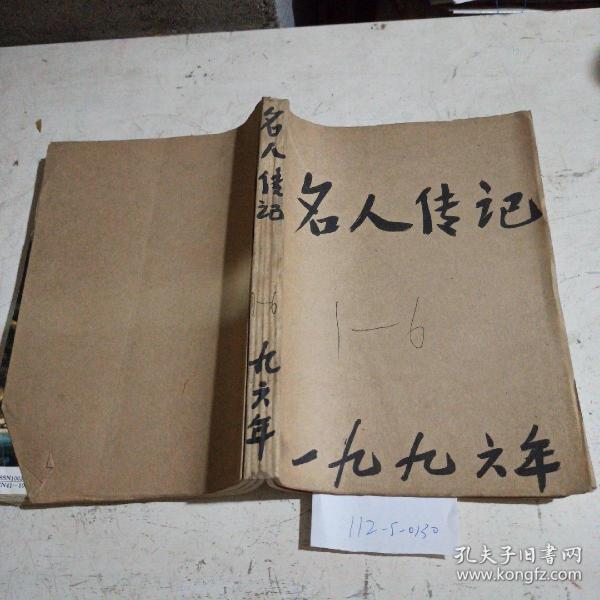 名人传记
1-6
九六年
名人传记
1-6
一九九六年
112-5-0130
孔夫子旧书网
www.kongfz.com